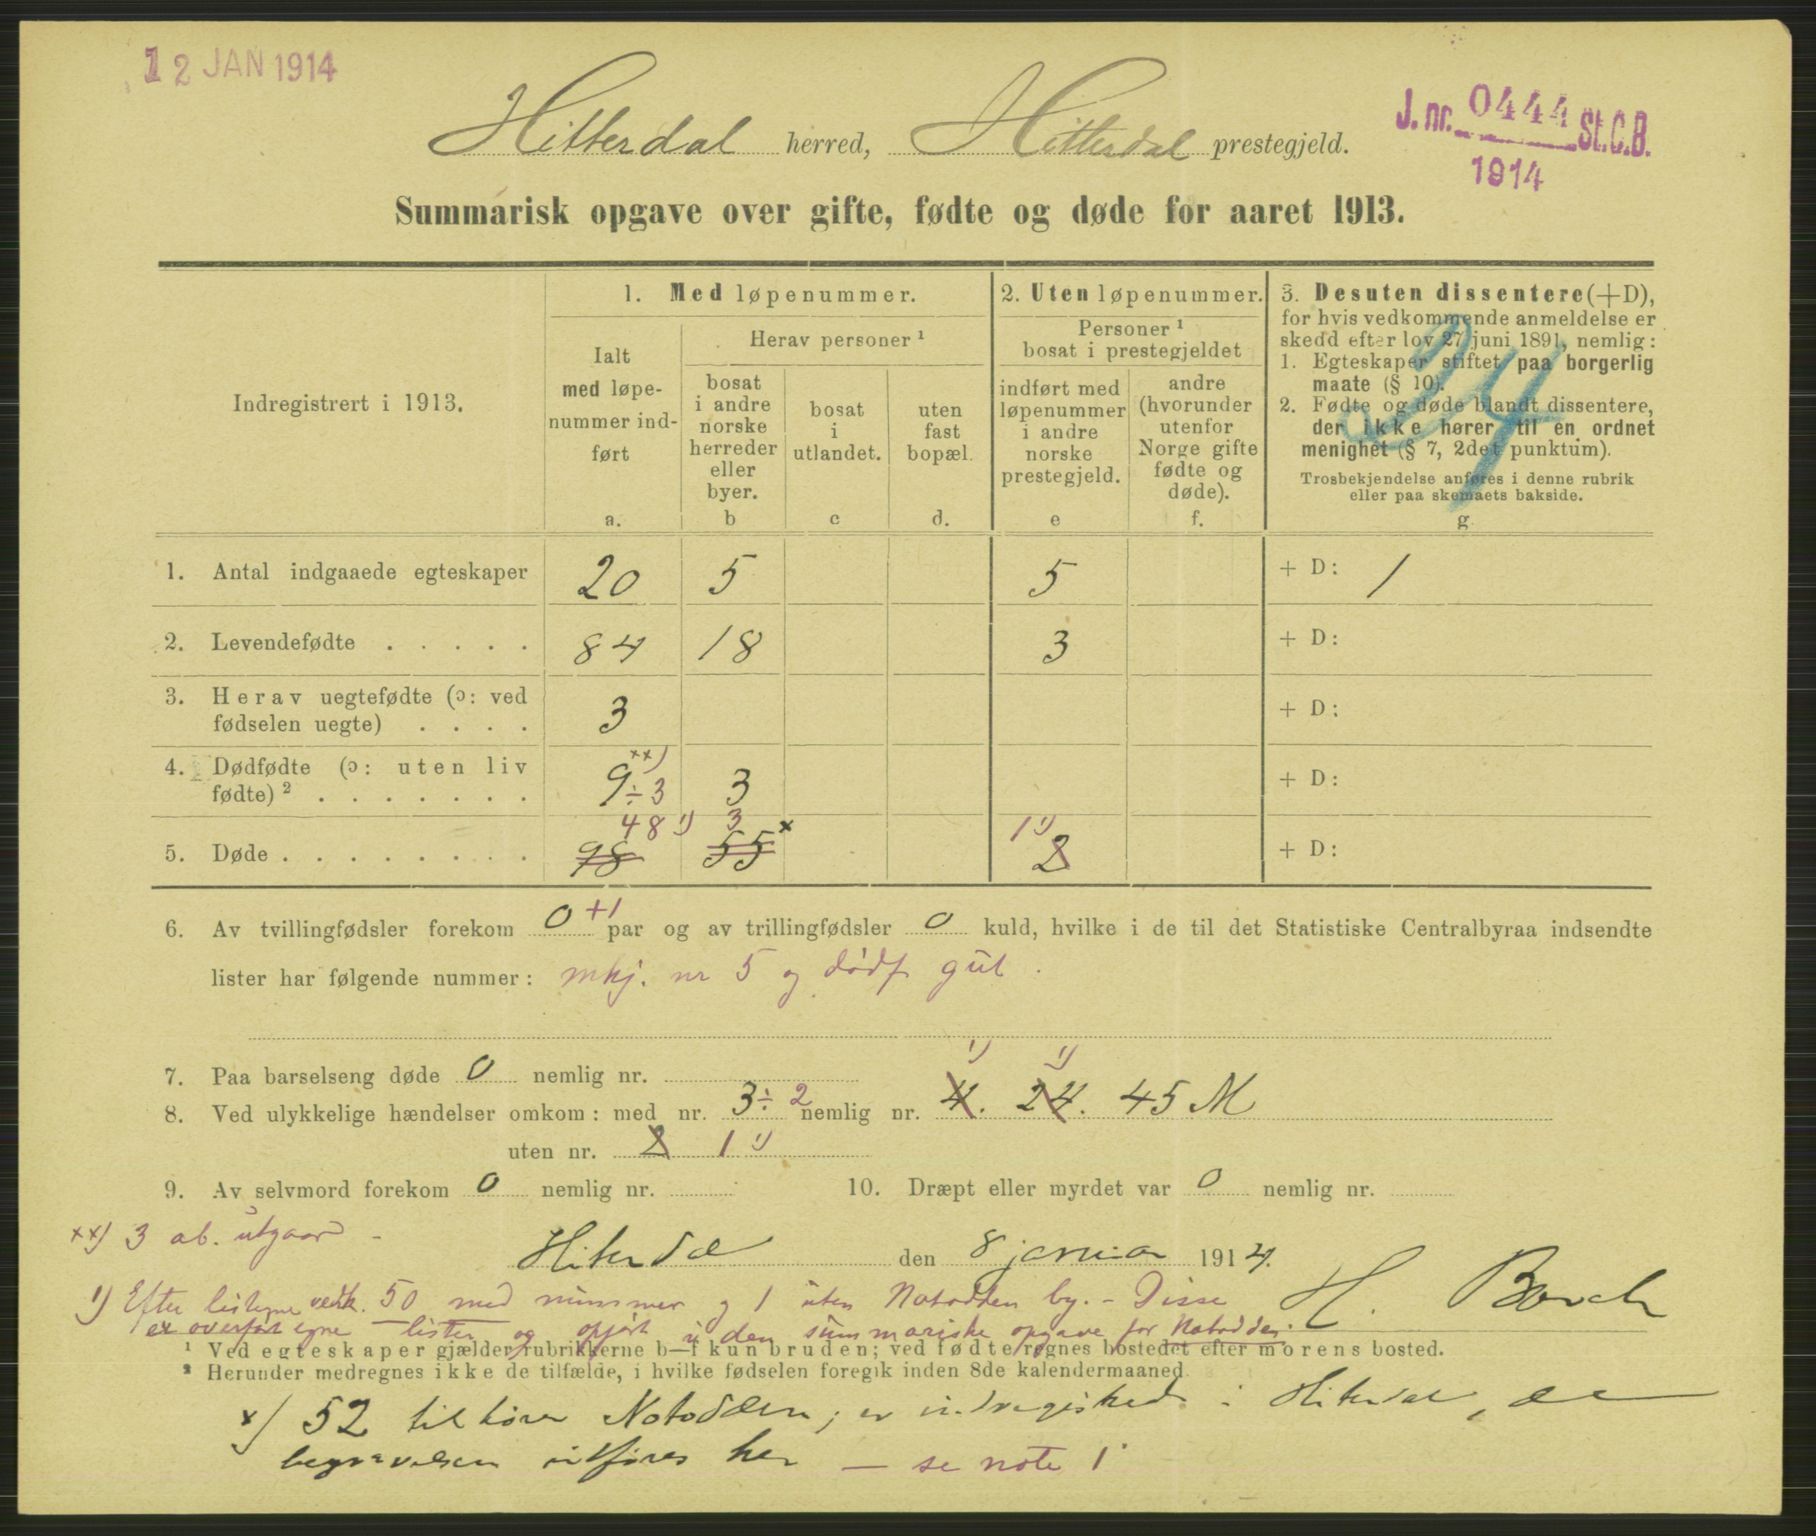 12 JAN 1914
J. nr. 0444 St.C.B.
1914
Hitterdal herred, Hitterdal prestegjeld.
Summarisk opgave over gifte, fødte og døde for aaret 1913.
Indregistrert i 1913.
1. Med løpenummer.
Ialt
med løpe-
nummer ind-
ført
a.
Herav personer ¹
bosat
i andre
norske
herreder
eller
byer.
b
bosat
i
utlandet.
c
uten
fast
bopæl.
d.
2. Uten løpenummer.
Personer ¹
bosat i prestegjeldet
indført med
løpenummer
i andre
norske
prestegjeld.
e
andre
(hvorunder
utenfor
Norge gifte
fødte og
døde).
f.
3. Desuten dissentere (+D),
for hvis vedkommende anmeldelse er
skedd efter lov 27 juni 1891, nemlig:
1. Egteskaper stiftet paa borgerlig
maate (§ 10).
2. Fødte og døde blandt dissentere,
der ikke hører til en ordnet
menighet (§ 7, 2det punktum).
Trosbekjendelse anføres i denne rubrik
eller paa skemaets bakside.
g
24
1. Antal indgaaede egteskaper 20 5 5 + D: 1
2. Levendefødte . . . . . 84 18 3 + D:
3. Herav uegtefødte (ɔ: ved
fødselen uegte) . . . . 3 + D:
4. Dødfødte (ɔ: uten liv
fødte) ² . . . . . . . 9 ××) ÷3 3 + D:
48 ¹) 3 1 ¹)
5. Døde . . . . . . . . . 98 55 × 2 + D:
6. Av tvillingfødsler forekom 0 +1 par og av trillingfødsler 0 kuld, hvilke i de til det Statistiske Centralbyraa indsendte
lister har følgende nummer: mkj. nr 5 og dødf gut.
7. Paa barselseng døde 0 nemlig nr.
¹) ¹)
8. Ved ulykkelige hændelser omkom: med nr. 3 ÷ 2 nemlig nr. 4. 24. 45 M
uten nr. 2 1 ¹)
9. Av selvmord forekom 0 nemlig nr. 10. Dræpt eller myrdet var 0 nemlig nr.
××) 3 ab. utgaar -
Hiterdal den 8 januar 1914.
H. Borch
¹) Efter listerne vedk. 50 med nummer og 1 uten Notodden by. - Disse
er overført egne lister og opført i den summariske opgave for Notodden.
¹ Ved egteskaper gjælder rubrikkerne b—f kun bruden; ved fødte regnes bostedet efter morens bosted.
² Herunder medregnes ikke de tilfælde, i hvilke fødselen foregik inden 8de kalendermaaned.
×) 52 tilhører Notodden; er indregistreret i Hiterdal, da
begravelsen utføres her — se note 1